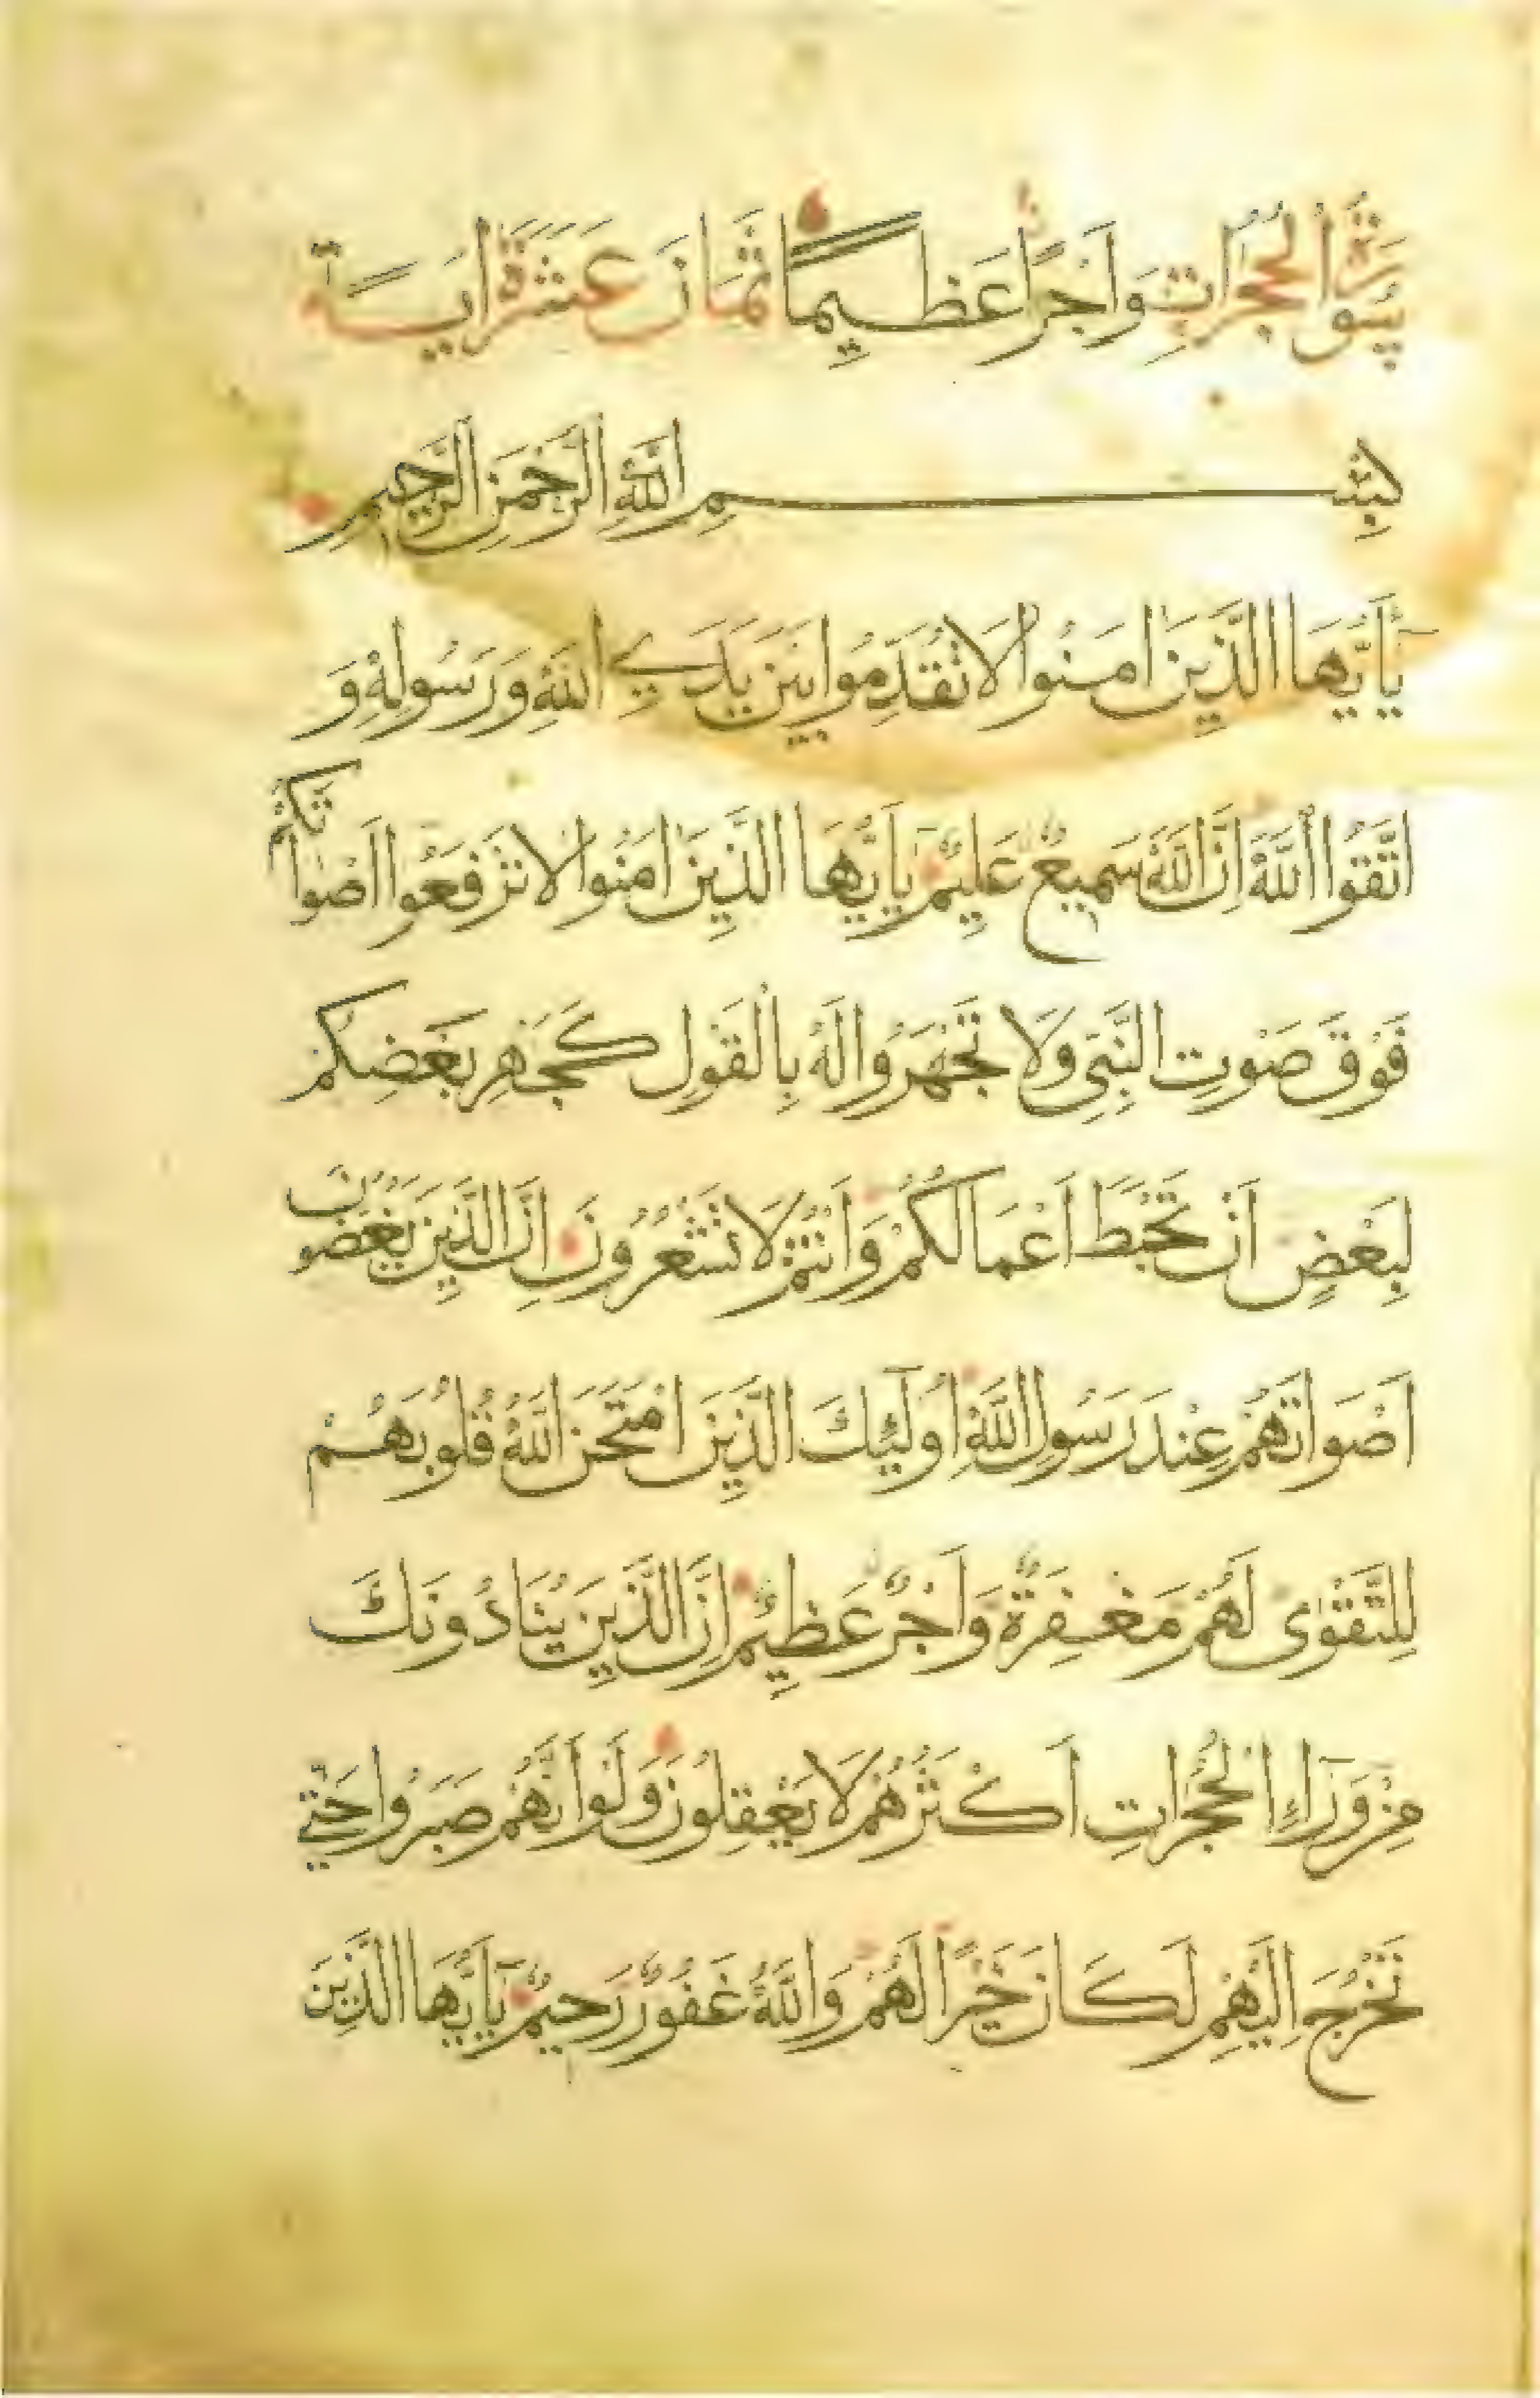 سُورَةُ الْحُجُرَاتِ وَاَجْرًا عَظِيمًا ثَمَانَ عَشَرَةَ اٰيَةً
بِسْمِ اللّٰهِ الرَّحْمٰنِ الرَّحِيمِ
يَٓا اَيُّهَا الَّذِينَ اٰمَنُوا لَا تُقَدِّمُوا بَيْنَ يَدَيِ اللّٰهِ وَرَسُولِهِ وَ
اتَّقُوا اللّٰهَ اِنَّ اللّٰهَ سَمِيعٌ عَلِيمٌ يَٓا اَيُّهَا الَّذِينَ اٰمَنُوا لَا تَرْفَعُوا اَصْوَاتَكُمْ
فَوْقَ صَوْتِ النَّبِيِّ وَلَا تَجْهَرُوا لَهُ بِالْقَوْلِ كَجَهْرِ بَعْضِكُمْ
لِبَعْضٍ اَنْ تَحْبَطَ اَعْمَالُكُمْ وَاَنْتُمْ لَا تَشْعُرُونَ اِنَّ الَّذِينَ يَغُضُّونَ
اَصْوَاتَهُمْ عِنْدَ رَسُولِ اللّٰهِ اُولٰٓئِكَ الَّذِينَ امْتَحَنَ اللّٰهُ قُلُوبَهُمْ
لِلتَّقْوٰى لَهُمْ مَغْفِرَةٌ وَاَجْرٌ عَظِيمٌ اِنَّ الَّذِينَ يُنَادُونَكَ
مِنْ وَرَٓاءِ الْحُجُرَاتِ اَكْثَرُهُمْ لَا يَعْقِلُونَ وَلَوْ اَنَّهُمْ صَبَرُوا حَتّٰى
تَخْرُجَ اِلَيْهِمْ لَكَانَ خَيْرًا لَهُمْ وَاللّٰهُ غَفُورٌ رَحِيمٌ يَٓا اَيُّهَا الَّذِينَ